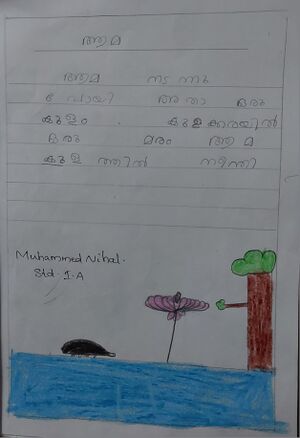 ആമ
ആമ നടന്നു
പോയി അതാ ഒരു
കുളം. കുളക്കരയിൽ
ഒരു മരം ആമ
കുളത്തിൽ നീന്തി
Muhammed Nihal.
Std. 1-A